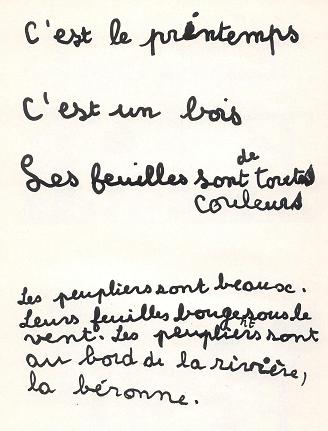 C'est le printemps
C'est un bois
Les feuilles sont de toutes
couleurs
Les peupliers sont beaux.
Leurs feuilles bougent sous le
vent. Les peupliers sont
au bord de la rivière,
la béronne.